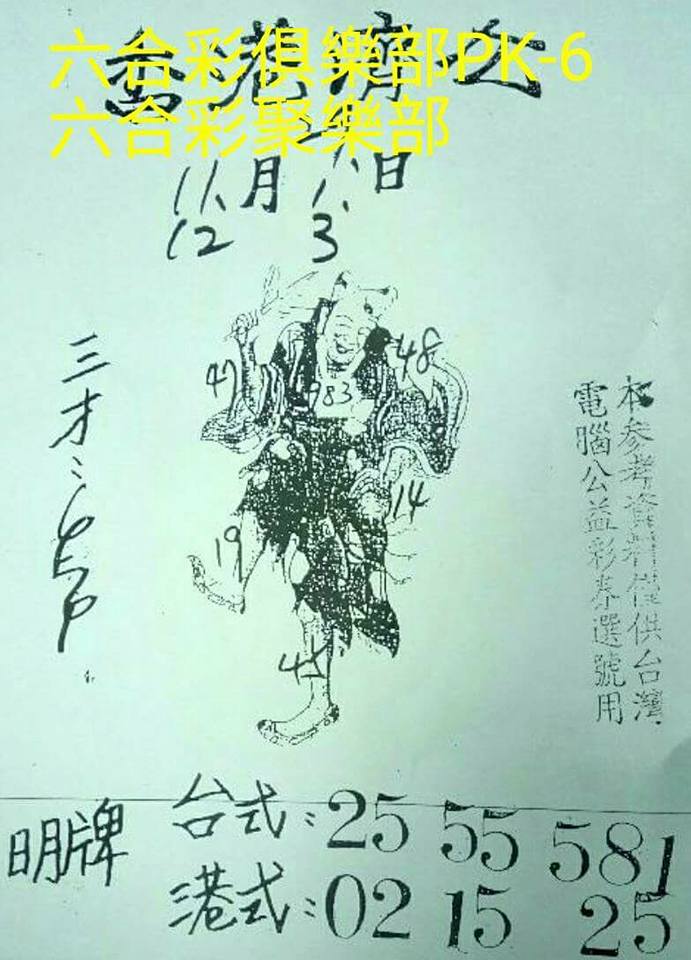 六合彩俱樂部PK-6
香港濟公
六合彩聚樂部
11、月1、日
12 3
三才:
47
48
983
14
19
45
本參考資料僅供台灣
電腦公益彩券選號用
明牌
台式:25 55 581
港式:02 15 25